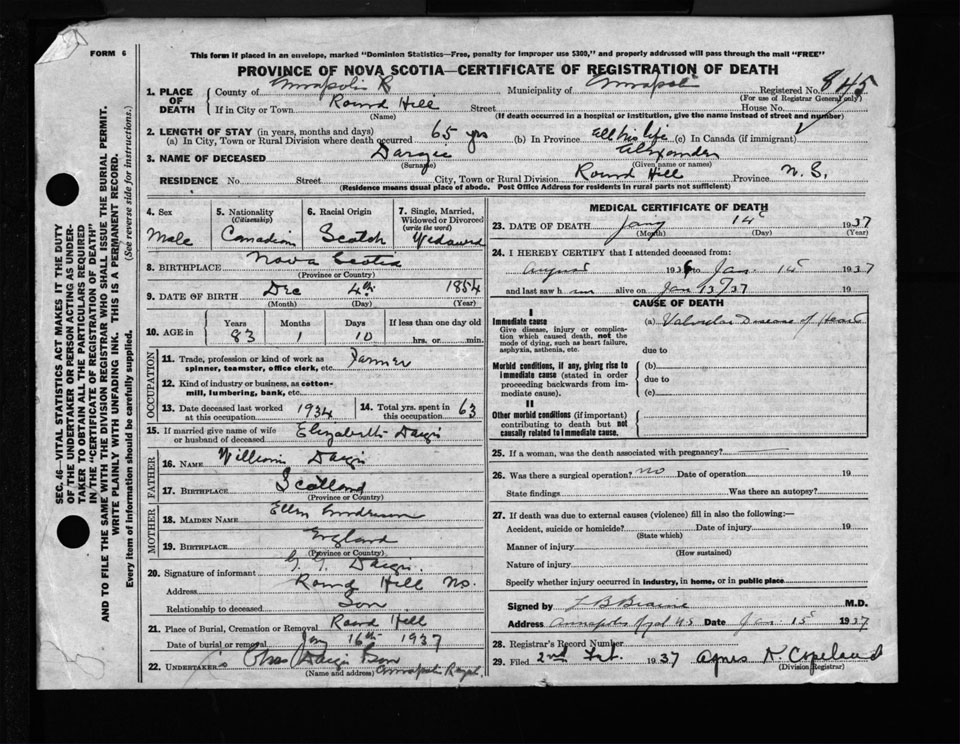 FORM 6
This form if placed in an envelope, marked "Dominion Statistics—Free, penalty for improper use $300," and properly addressed will pass through the mail "FREE"
PROVINCE OF NOVA SCOTIA—CERTIFICATE OF REGISTRATION OF DEATH
1. PLACE OF DEATH
County of Annapolis Municipality of Annapolis Registered No. 845
(For use of Registrar General only)
If in City or Town Round Hill Street House No.
(Name) (If death occurred in a hospital or institution, give the name instead of street and number)
2. LENGTH OF STAY (in years, months and days)
(a) In City, Town or Rural Division where death occurred 65 yrs (b) In Province All his life (c) In Canada (if immigrant)
3. NAME OF DECEASED Dargie Alexander
(Surname) (Given name or names)
RESIDENCE No. Street City, Town or Rural Division Round Hill Province N.S.
(Residence means usual place of abode. Post Office Address for residents in rural parts not sufficient)
4. Sex Male
5. Nationality (Citizenship) Canadian
6. Racial Origin Scotch
7. Single, Married, Widowed or Divorced (write the word) Widowed
8. BIRTHPLACE Nova Scotia
(Province or Country)
9. DATE OF BIRTH Dec 4th 1854
(Month) (Day) (Year)
10. AGE in Years Months Days If less than one day old
83 1 10 hrs. or min.
OCCUPATION
11. Trade, profession or kind of work as spinner, teamster, office clerk, etc. Farmer
12. Kind of industry or business, as cotton-mill, lumbering, bank, etc.
13. Date deceased last worked at this occupation 1934
14. Total yrs. spent in this occupation 63
15. If married give name of wife or husband of deceased Elizabeth Dargie
FATHER
16. NAME William Dargie
17. BIRTHPLACE Scotland
(Province or Country)
MOTHER
18. MAIDEN NAME Ellen
19. BIRTHPLACE England
(Province or Country)
20. Signature of informant Dargie
Address Round Hill
Relationship to deceased Son
21. Place of Burial, Cremation or Removal Round Hill
Date of burial or removal Jany 16th 1937
22. UNDERTAKER'S Dargie Son
(Name and address) Annapolis Royal
MEDICAL CERTIFICATE OF DEATH
23. DATE OF DEATH 14 1937
(Month) (Day) (Year)
24. I HEREBY CERTIFY that I attended deceased from:
August 1936 to Jan 14 1937
and last saw him alive on Jan 13/37 19
CAUSE OF DEATH
I
Immediate cause
Give disease, injury or complication which caused death, not the mode of dying, such as heart failure, asphyxia, asthenia, etc.
(a) Valvular Disease of Heart
due to
Morbid conditions, if any, giving rise to immediate cause (stated in order proceeding backwards from immediate cause).
(b)
due to
(c)
II
Other morbid conditions (if important) contributing to death but not causally related to immediate cause.
25. If a woman, was the death associated with pregnancy?
26. Was there a surgical operation? no Date of operation 19
State findings Was there an autopsy?
27. If death was due to external causes (violence) fill in also the following:—
Accident, suicide or homicide? Date of injury 19
(State which)
Manner of injury
(How sustained)
Nature of injury
Specify whether injury occurred in industry, in home, or in public place
Signed by L B Braine M.D.
Address Annapolis Royal N.S Date Jan. 15 1937
28. Registrar's Record Number
29. Filed 2nd Feb. 1937 Agnes N Copeland
(Division Registrar)
SEC. 46—VITAL STATISTICS ACT MAKES IT THE DUTY
OF THE UNDERTAKER OR PERSON ACTING AS UNDER-
TAKER TO OBTAIN ALL THE PARTICULARS REQUIRED
IN THE "CERTIFICATE OF REGISTRATION OF DEATH"
AND TO FILE THE SAME WITH THE DIVISION REGISTRAR WHO SHALL ISSUE THE BURIAL PERMIT.
WRITE PLAINLY WITH UNFADING INK. THIS IS A PERMANENT RECORD.
Every item of information should be carefully supplied. (See reverse side for instructions.)